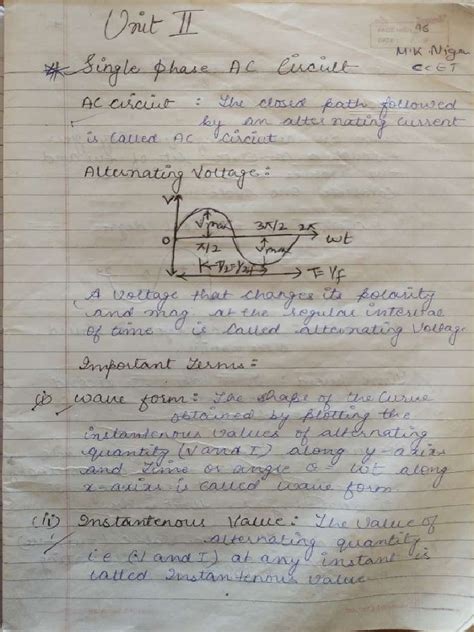 Unit II
PAGE NO.
DATE
46
M·K·Nigm
CCET
* Single phase AC Circuit
AC Circiut : The closed path followed
by an alternating current
is called AC Circiut
Alternating Voltage :
V
Vmax
3π/2 2π
0
π/2
Vmax
wt
T/2 = 1/2f
T = 1/f
A voltage that changes its polarity
and mag. at the regular interval
of time is called alternating Voltage
Important Terms :
(i) Wave form : The shape of the curve
obtained by plotting the
instantenous values of alternating
quantity (V and I) along y-axis
and time or angle θ wt along
x-axis is called wave form.
(ii) Instantenous Value : The value of
alternating quantity
i.e (V and I) at any instant is
called Instantenous value